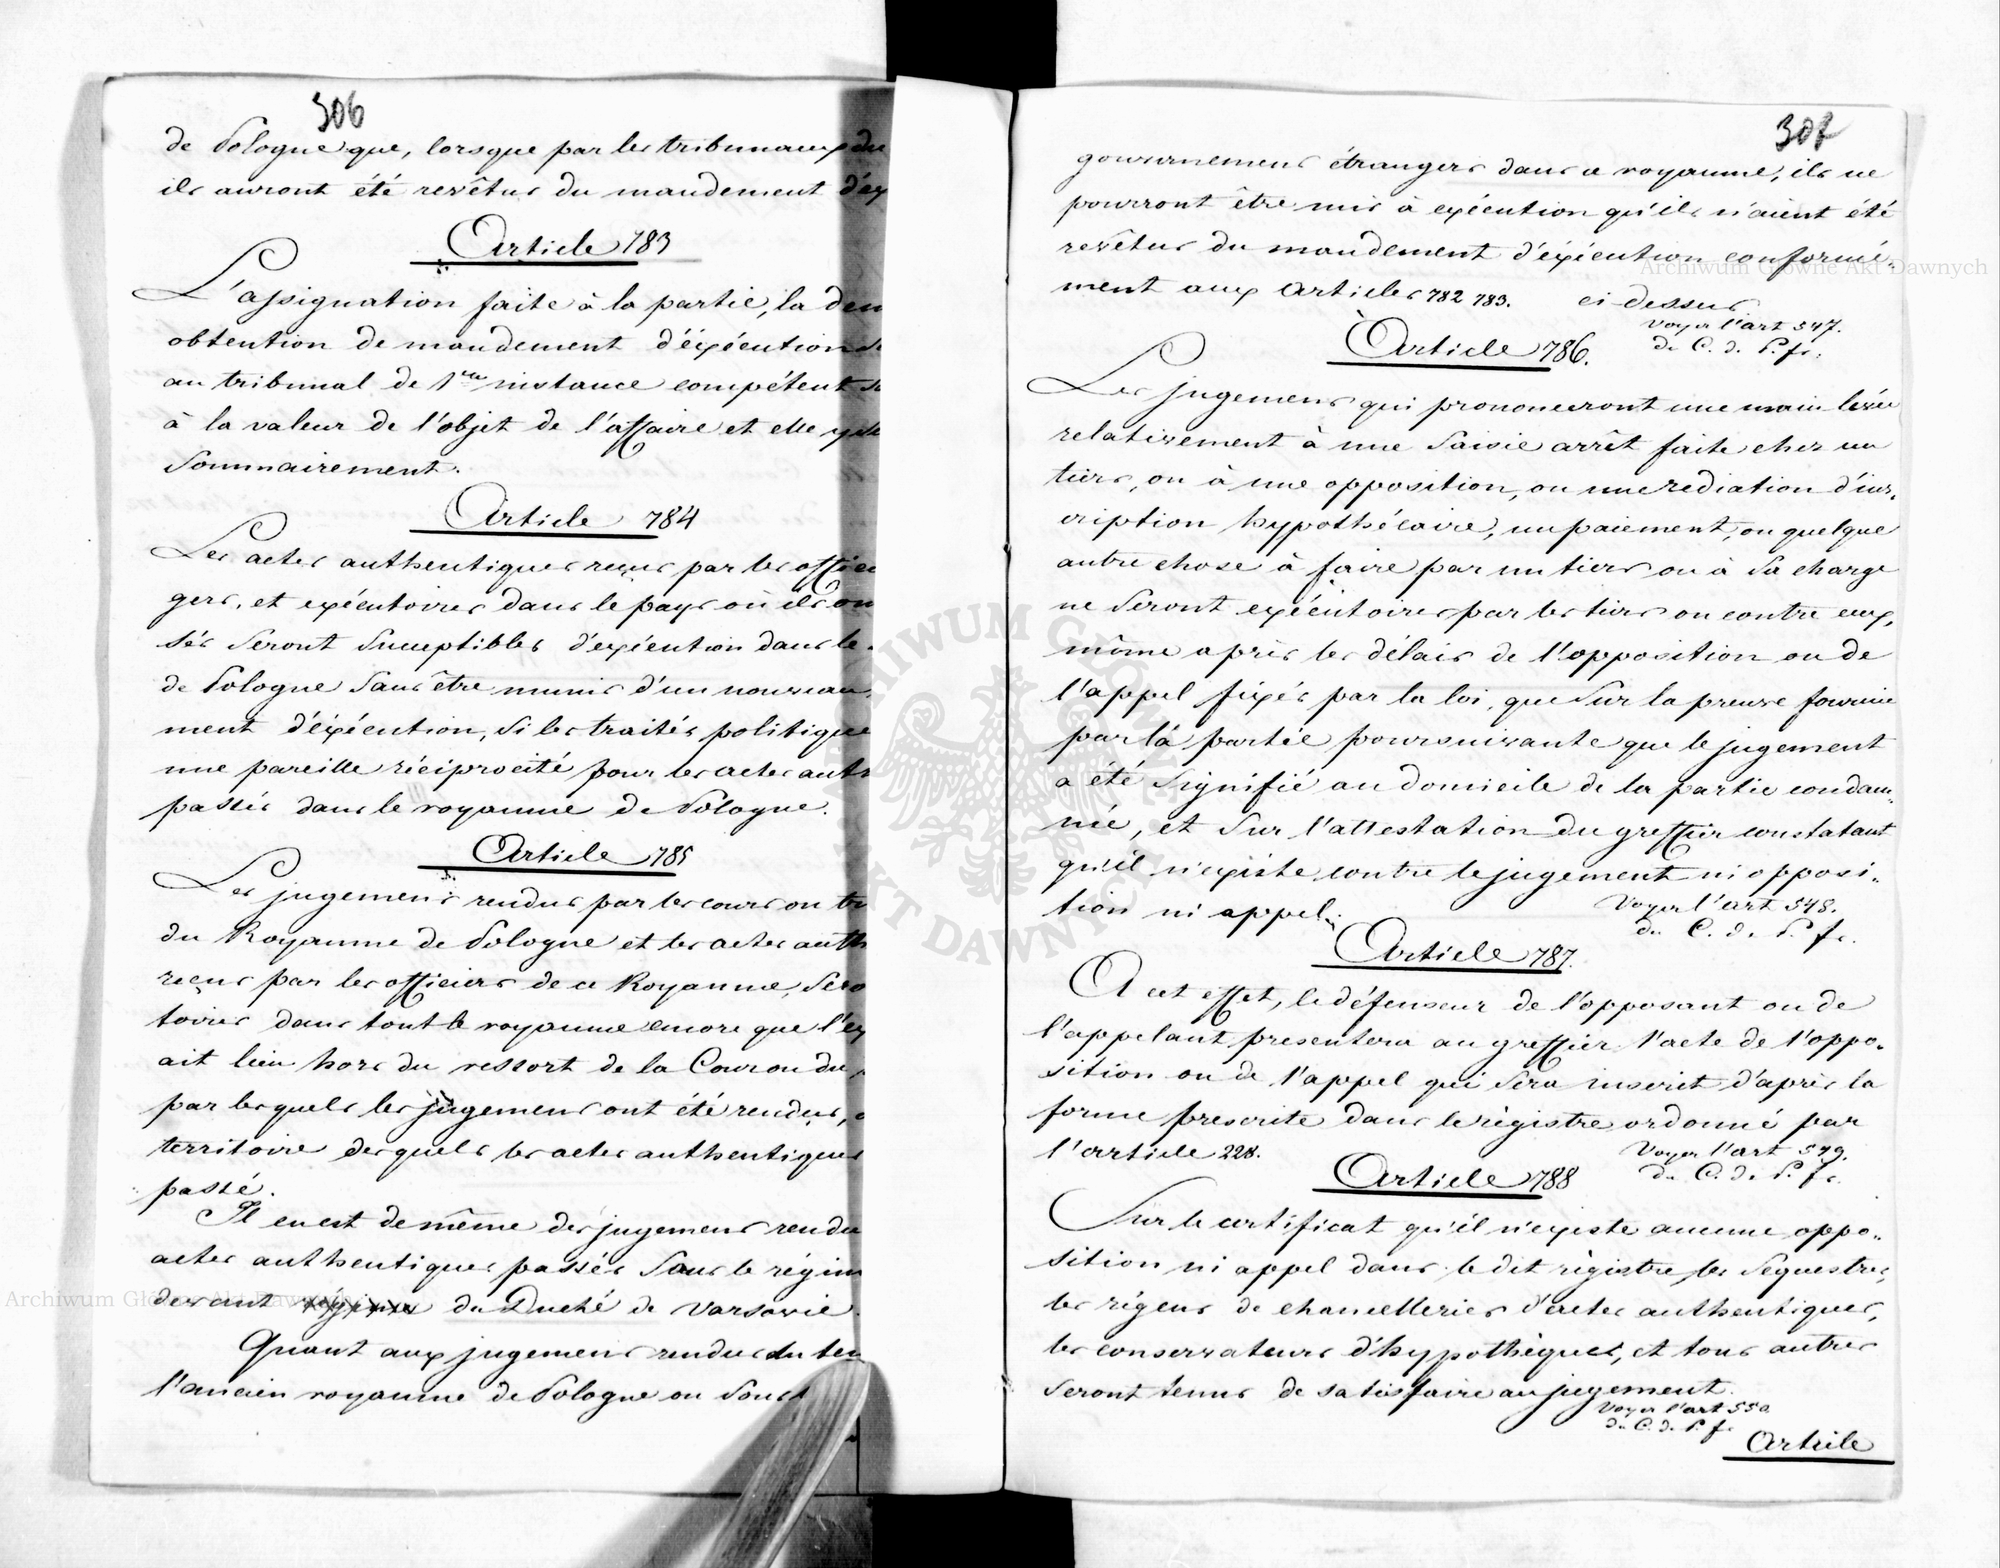 306
de Pologne que, lorsque par les tribunaux du
ils auront été revêtus du mandement d'ex
Article 783
L'assignation faite à la partie, la dem
obtention de mandement d'éxécution
au tribunal de 1re instance compétent
à la valeur de l'objet de l'affaire et elle y
sommairement.
Article 784
Les actes authentiques reçus par les offici
gers, et exécutoires dans le pays où ils on
sés seront suceptibles d'exécution dans le
de Pologne sans être munis d'un nouveau
ment d'éxécution, si les traités politique
une pareille réciprocité pour les actes auth
passés dans le royaume de Pologne.
Article 785
Les jugemens rendus par les cours ou tr
du Royaume de Pologne et les actes auth
reçus par les officiers de ce Royaume, sero
toires dans tout le royaume encore que l'ex
ait lieu hors du ressort de la Cour ou du
par lesquels les jugemens ont été rendus,
territoire desquels les actes authentiques
passé.
Il en est de même des jugemens rendu
actes authentiques passés sous le régim
devant du Duché de Varsovie.
Quant aux jugemens rendus du tem
l'ancien royaume de Pologne ou sous
307
gouvernemens étrangers dans ce royaume, ils ne
pourront être mis à exécution qu'ils n'aient été
revêtus du mandement d'éxécution conformé-
ment aux articles 782 783. ci dessus
Voyez l'art 547.
du C. d. P. fr.
Article 786.
Les jugemens qui prononceront une main levée
relativement à une saisie arrêt faite chez un
tiers, ou à une opposition, ou une rediation d'ins-
cription hypothécaire, un paiement, ou quelque
autre chose à faire par un tiers ou à sa charge
ne seront exécutoires par les tiers ou contre eux,
même après les délais de l'opposition ou de
l'appel fixés par la loi, que sur la preuve fournie
par la partie poursuivante que le jugement
a été signifié au domicile de la partie condam-
née, et sur l'attestation du greffier constatant
qu'il n'existe contre le jugement ni opposi-
tion ni appel.
Voyez l'art 548.
du C. d. P. fr.
Article 787.
A cet effet, le défenseur de l'opposant ou de
l'appelant presentera au greffier l'acte de l'oppo-
sition ou de l'appel qui sera inscrit d'après la
forme prescrite dans le régistre ordonné par
l'article 228.
Voyez l'art 549.
du C. d. P. fr.
Article 788
Sur le certificat qu'il n'existe aucune oppo-
sition ni appel dans le dit régistre, les sequestres,
les régens de chancelleries d'actes authentiques,
les conservateurs d'hypothèques, et tous autres
seront tenus de satisfaire au jugement.
Voyez l'art 550
du C. d. P. fr.
Article
Archiwum Główne Akt Dawnych
Archiwum Główne Akt Dawnych
ARCHIWUM GŁÓWNE AKT DAWNYCH